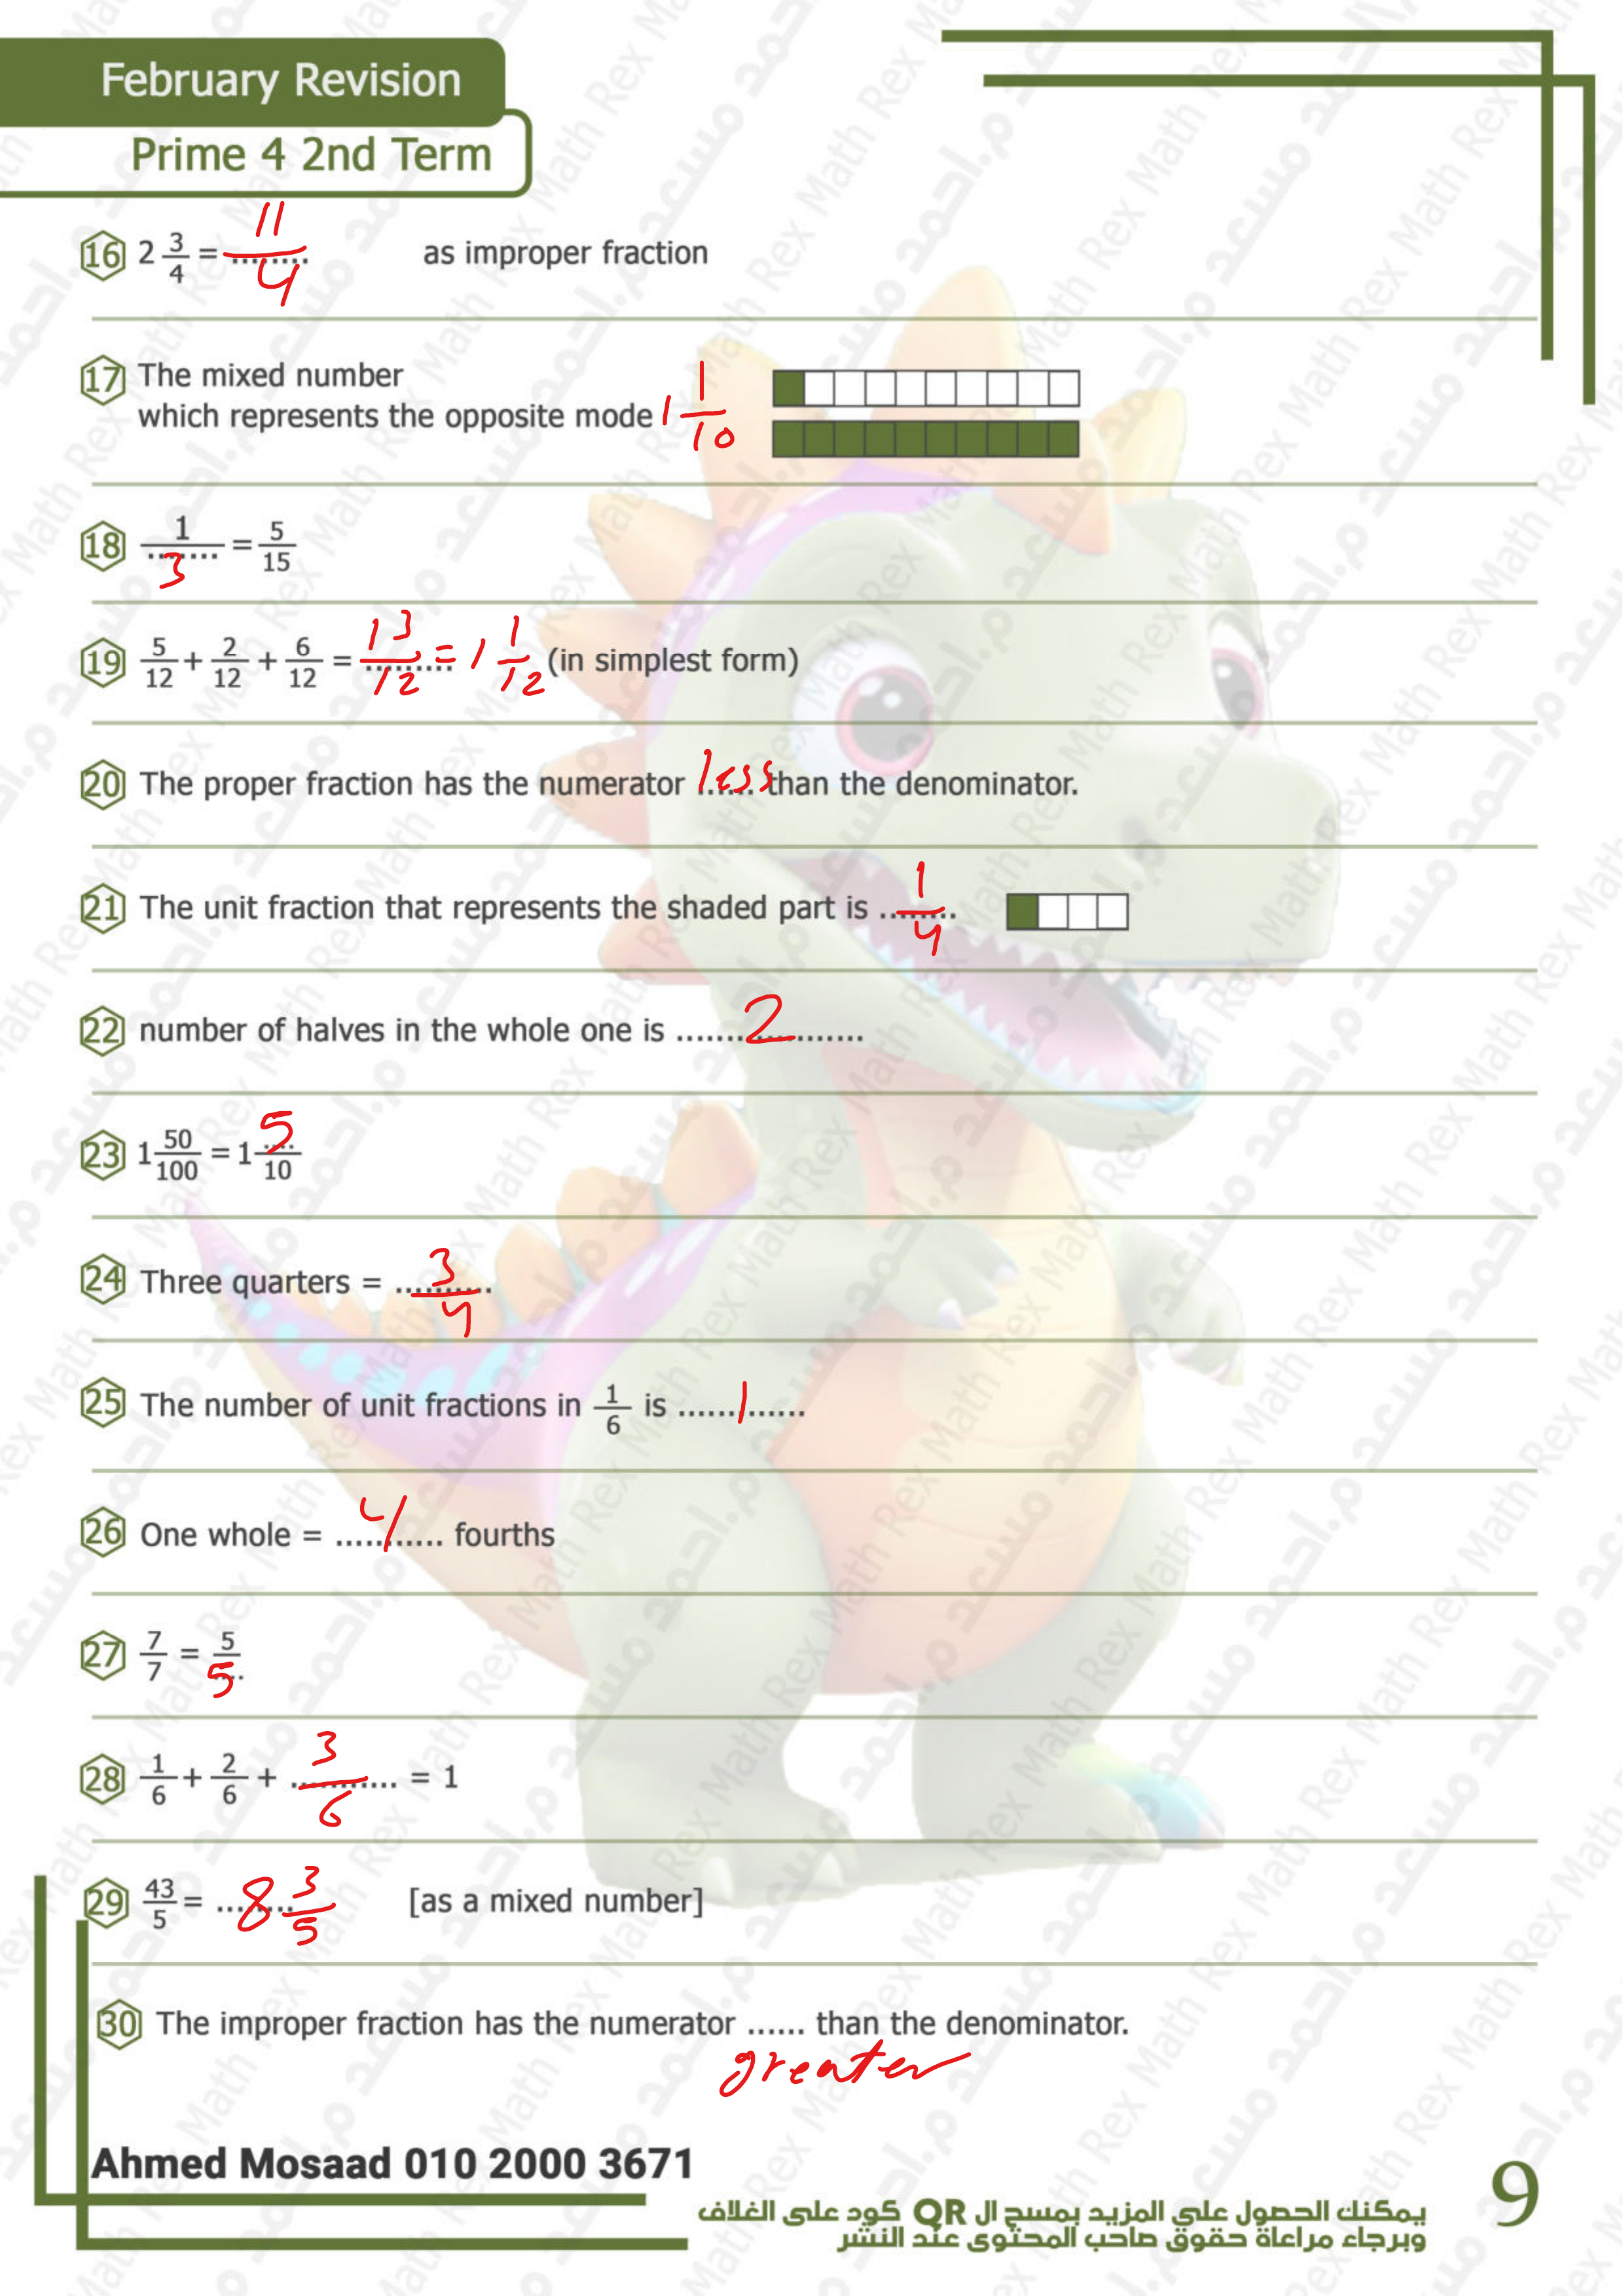 February Revision
Prime 4 2nd Term
16 2 3/4 = 11/4 as improper fraction
17 The mixed number
which represents the opposite mode 1 1/10
18 1/3 = 5/15
19 5/12 + 2/12 + 6/12 = 13/12 = 1 1/12 (in simplest form)
20 The proper fraction has the numerator less than the denominator.
21 The unit fraction that represents the shaded part is 1/4
22 number of halves in the whole one is 2
23 1 50/100 = 1 5/10
24 Three quarters = 3/4
25 The number of unit fractions in 1/6 is 1
26 One whole = 4 fourths
27 7/7 = 5/5
28 1/6 + 2/6 + 3/6 = 1
29 43/5 = 8 3/5 [as a mixed number]
30 The improper fraction has the numerator ...... than the denominator.
greater
Ahmed Mosaad 010 2000 3671
يمكنك الحصول على المزيد بمسح ال QR كود على الغلاف
وبرجاء مراعاة حقوق صاحب المحتوى عند النشر
9
Math Rex م.احمد مسعد